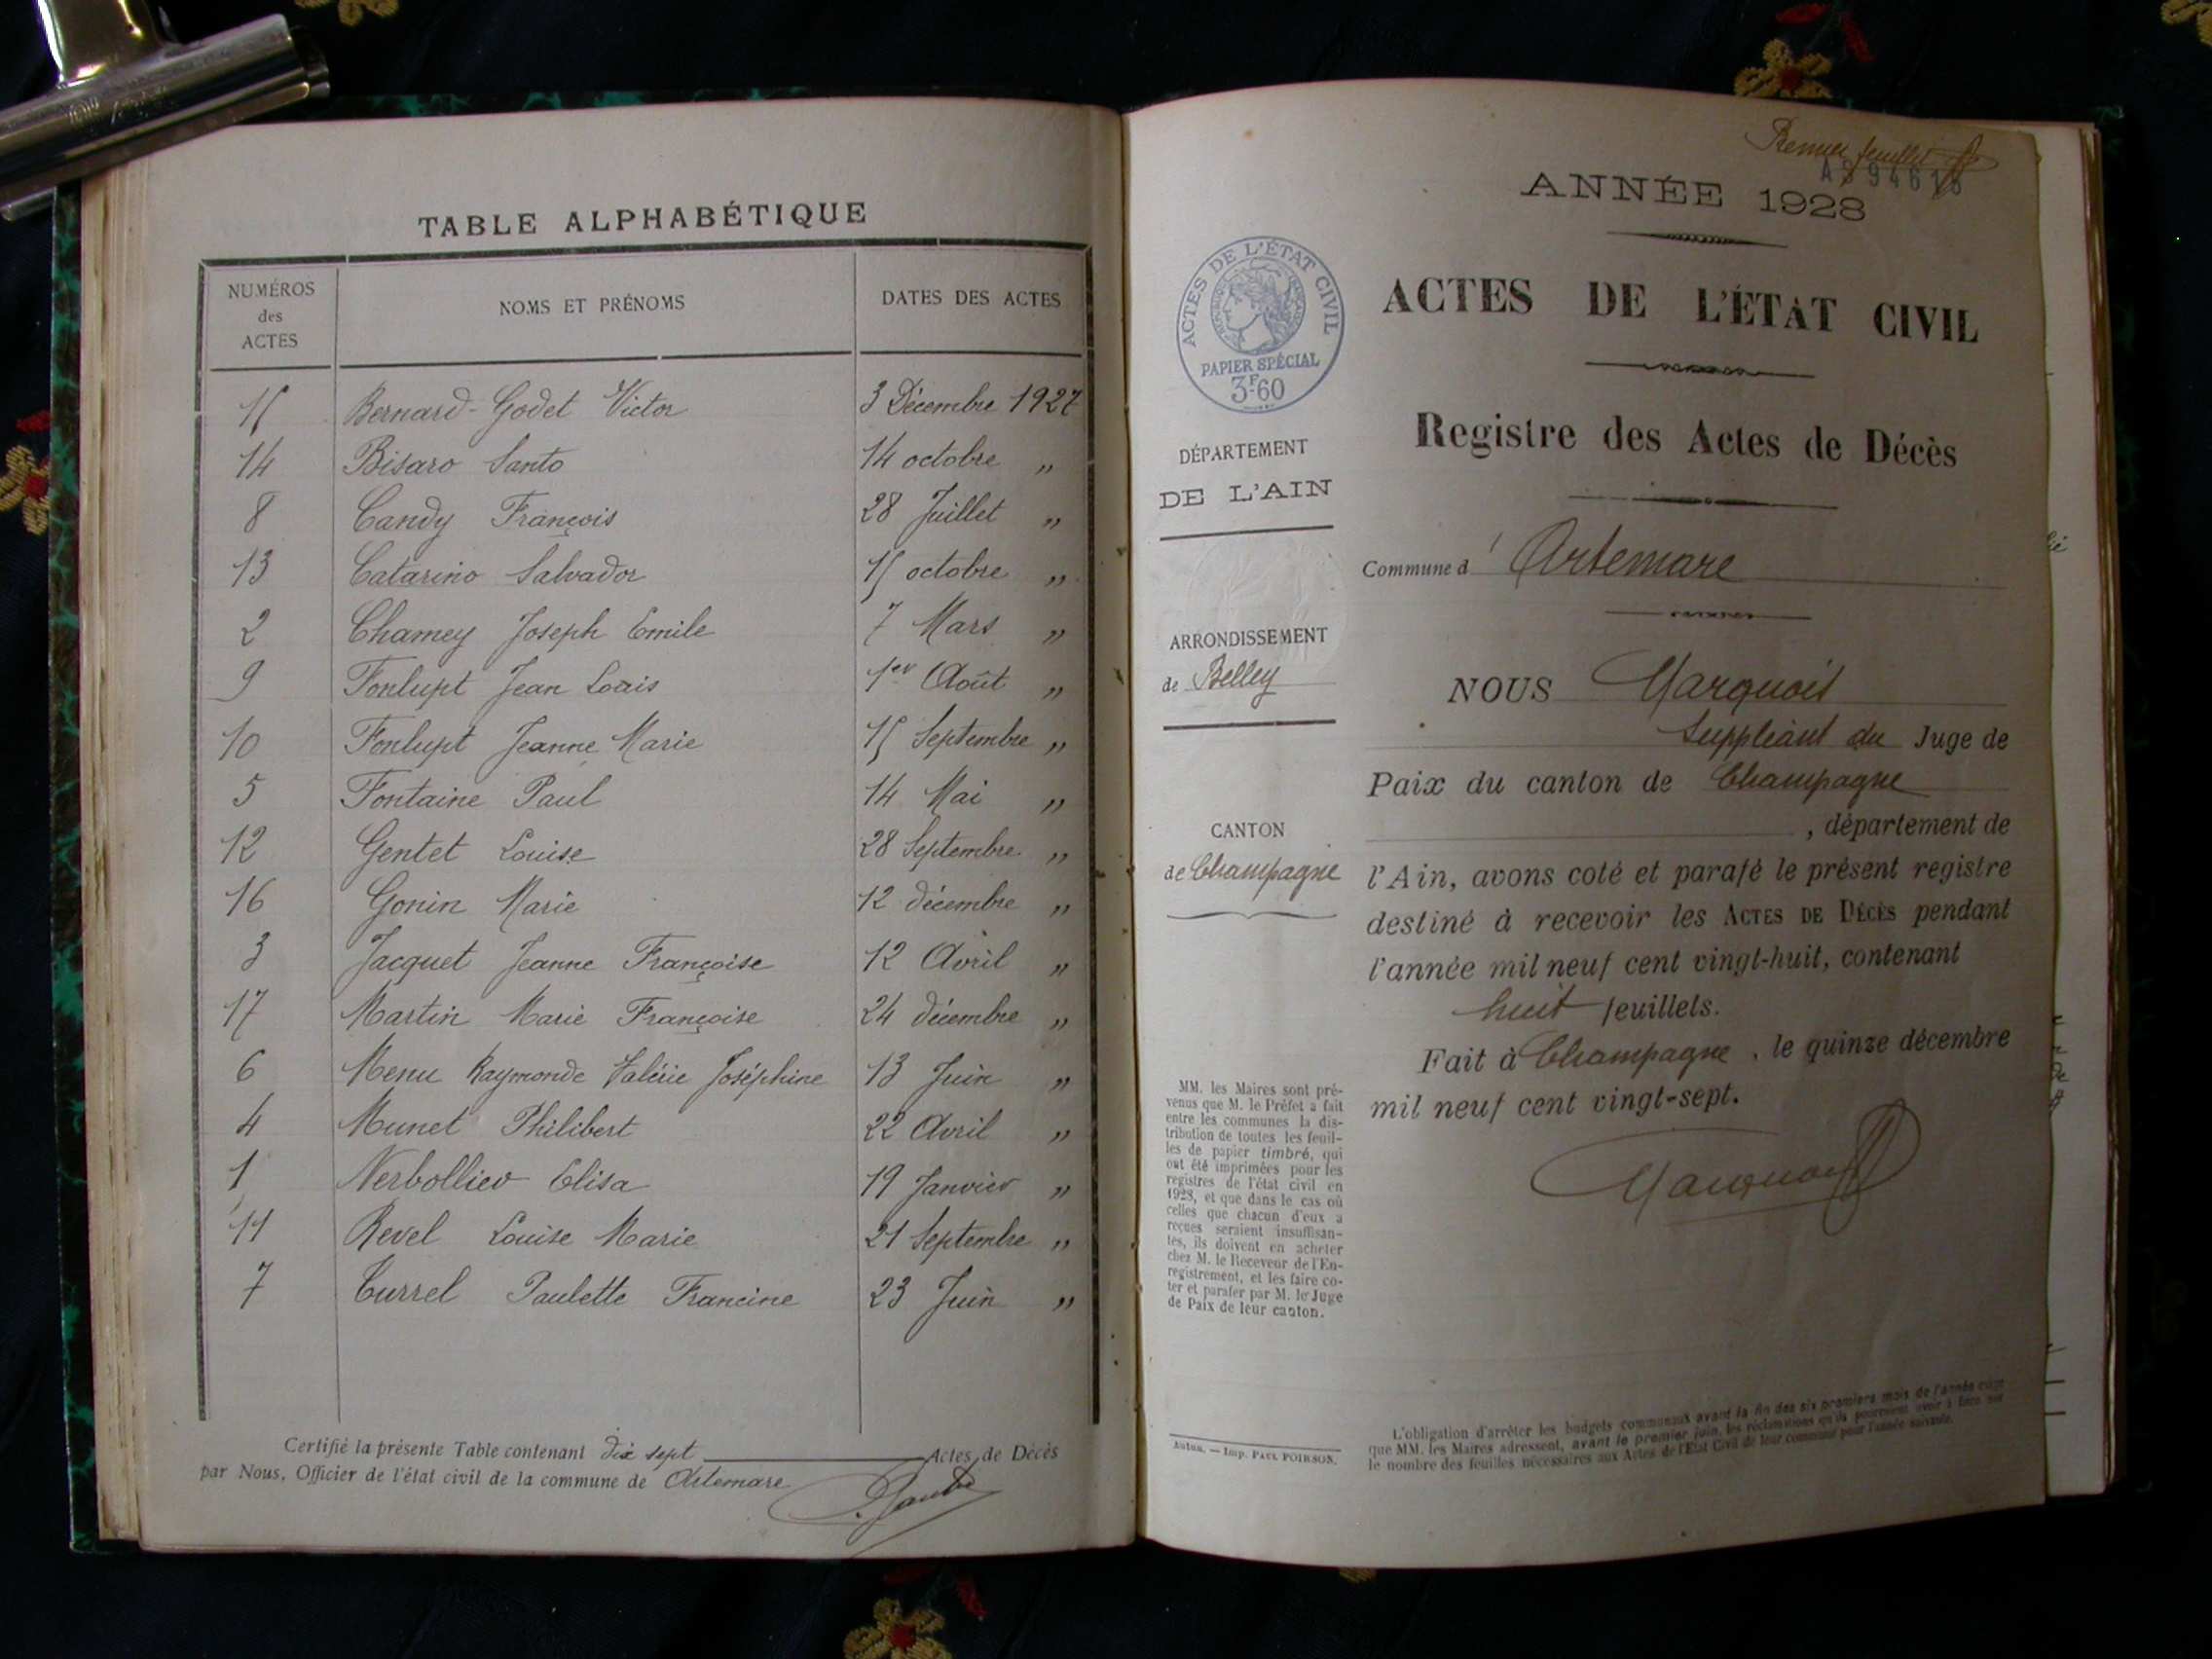 TABLE ALPHABÉTIQUE
NUMÉROS des ACTES
NOMS ET PRÉNOMS
DATES DES ACTES
15 Bernard-Godet Victor 3 Décembre 1927
14 Bisaro Santo 14 octobre "
8 Candy François 28 Juillet "
13 Catarino Salvador 15 octobre "
2 Chamey Joseph Emile 7 Mars "
9 Fonlupt Jean Louis 1er Août "
10 Fonlupt Jeanne Marie 15 Septembre "
5 Fontaine Paul 14 Mai "
12 Gentet Louise 28 Septembre "
16 Gonin Marie 12 décembre "
3 Jacquet Jeanne Françoise 12 Avril "
17 Martin Marie Françoise 24 décembre "
6 Menu Raymonde Valérie Joséphine 13 Juin "
4 Munet Philibert 22 Avril "
1 Nerbollier Elisa 19 Janvier "
11 Revel Louise Marie 21 Septembre "
7 Turrel Paulette Francine 23 Juin "
Certifié la présente Table contenant dix sept Actes de Décès
par Nous, Officier de l'état civil de la commune de Artemare
Premier feuillet
ANNÉE 1928
ACTES DE L'ÉTAT CIVIL
PAPIER SPÉCIAL
3F60
ACTES DE L'ÉTAT CIVIL
Registre des Actes de Décès
DÉPARTEMENT
DE L'AIN
Commune d'Artemare
ARRONDISSEMENT
de Belley
CANTON
de Champagne
NOUS Marquois
Suppléant du Juge de
Paix du canton de Champagne
, département de
l'Ain, avons coté et parafé le présent registre
destiné à recevoir les ACTES DE DÉCÈS pendant
l'année mil neuf cent vingt-huit, contenant
huit feuillets.
Fait à Champagne, le quinze décembre
mil neuf cent vingt-sept.
Marquois
MM. les Maires sont pré-
venus que M. le Préfet a fait
entre les communes la dis-
tribution de toutes les feuil-
les de papier timbré, qui
ont été imprimées pour les
registres de l'état civil en
1928, et que dans le cas où
celles que chacun d'eux a
reçues seraient insuffisan-
tes, ils doivent en acheter
chez M. le Receveur de l'En-
registrement, et les faire co-
ter et parafer par M. le Juge
de Paix de leur canton.
Autun. — Imp. PAUL POIRSON.
L'obligation d'arrêter les budgets communaux avant la fin des six premiers mois de l'année exige
que MM. les Maires adressent, avant le premier juin, les réclamations qu'ils pourraient avoir à faire sur
le nombre des feuilles nécessaires aux Actes de l'État Civil de leur commune pour l'année suivante.